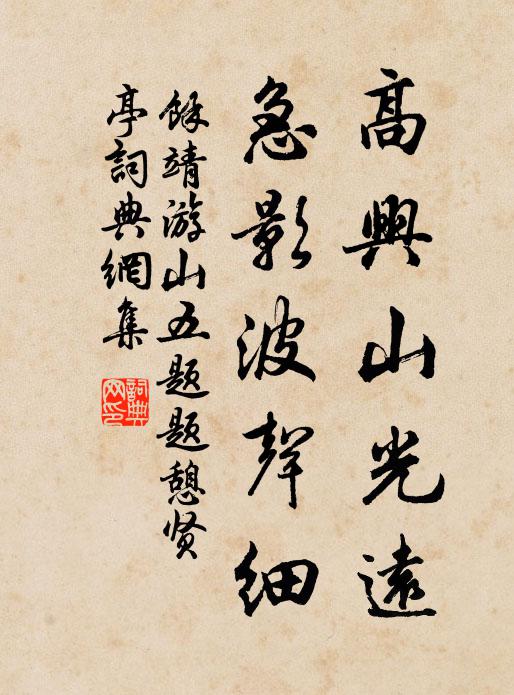 高興山光遠
急影波聲細
餘靖游山五题题憩贤
亭詞典網集
詞典
网印